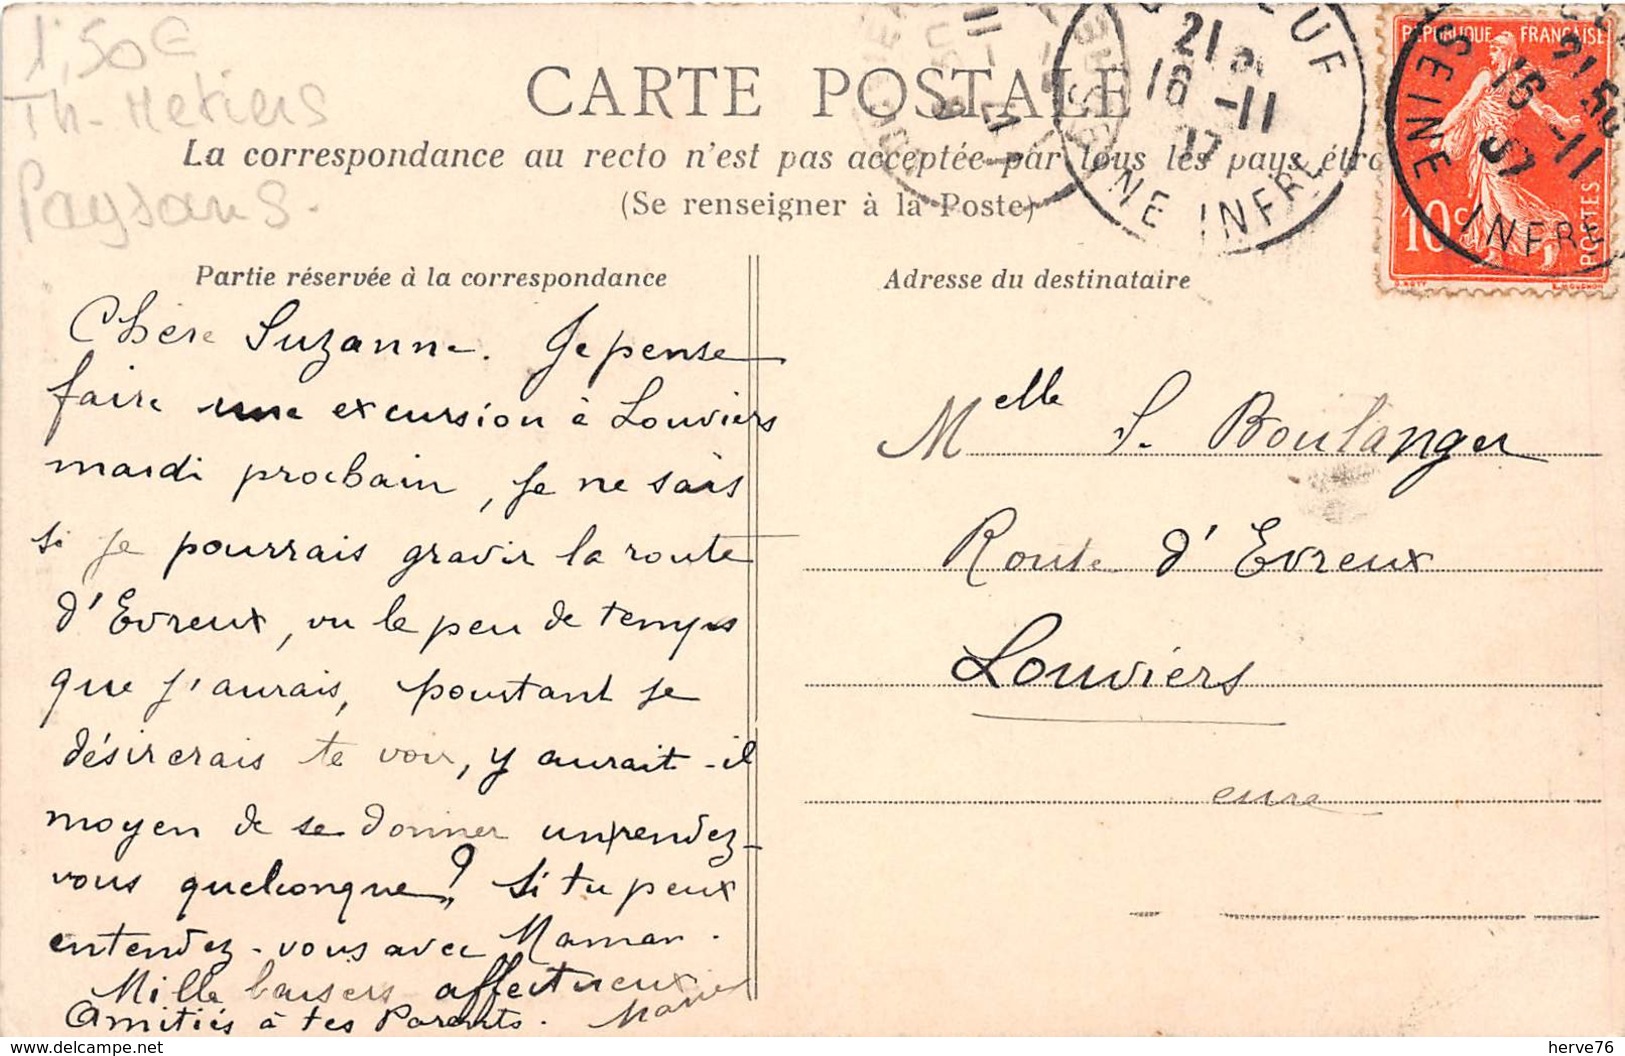 1,50€
Th-Metiers
Paysans.
CARTE POSTALE
La correspondance au recto n'est pas acceptée par tous les pays étra
(Se renseigner à la Poste)
21
16-11
07
SEINE INFRE
REPUBLIQUE FRANÇAISE
10c
POSTES
O. ROTY
E. MOUCHON
SEINE INFRE
16-11
07
Partie réservée à la correspondance
Chère Suzanne. Je pense
faire une excursion à Louviers
mardi prochain, je ne sais
si je pourrais gravir la route
d'Evreux, vu le peu de temps
que j'aurais, pourtant je
désirerais te voir, y aurait-il
moyen de se donner un rendez-
vous quelconque? Si tu peux
entendez-vous avec Maman.
Mille baisers affectueux
Amitiés à tes Parents.
Adresse du destinataire
Melle S. Boulanger
Route d'Evreux
Louviers
eure
herve76